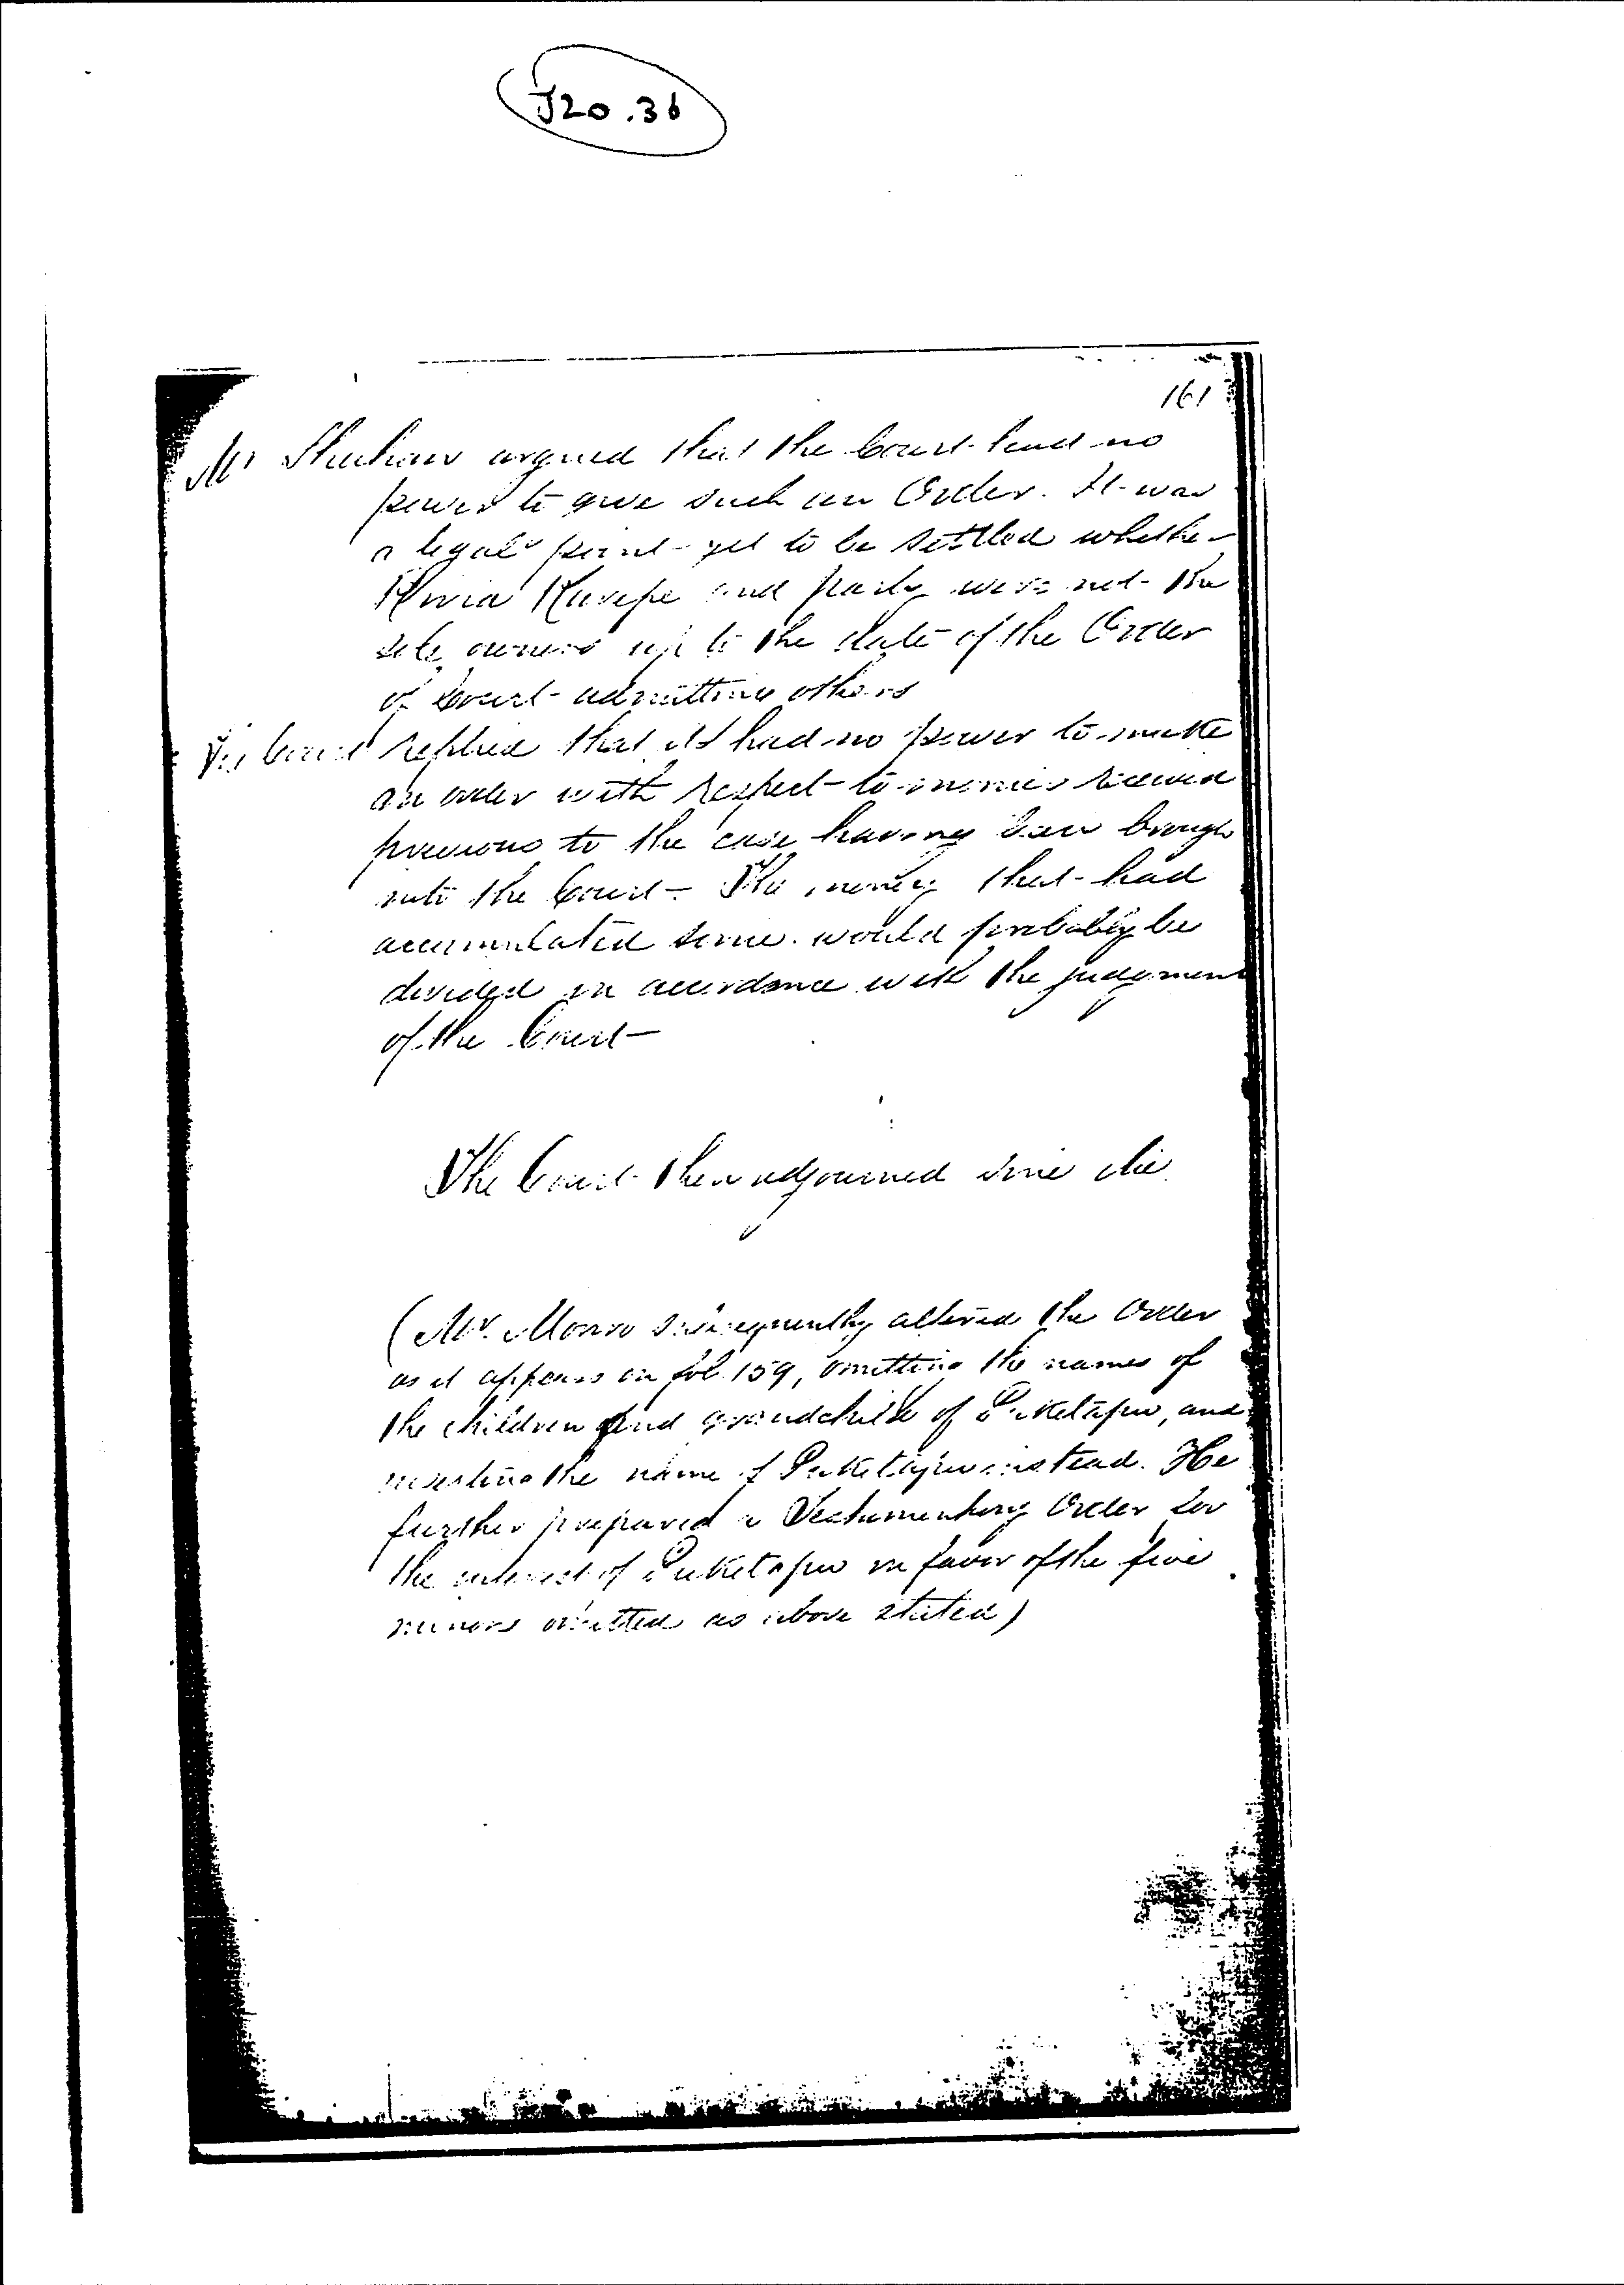 J20.36
161
Mr Sheehan argued that the Court had no
power to give such an Order. It was
a legal point yet to be settled whether
and party were not the
sole owners up to the date of the Order
of Court admitting others
The Court replied that it had no power to make
an order with respect to monies received
previous to the case having been brought
into the Court – The money that had
accumulated since would probably be
divided in accordance with the judgment
of the Court –
The Court then adjourned sine die
(Mr. Monro subsequently altered the Order
as it appears on fol. 159, omitting the names of
the children and grandchild of Puketapu, and
inserting the name of Puketapu instead. He
further prepared a Testamentary Order for
the interest of Puketapu in favor of the five
minors omitted as above stated)